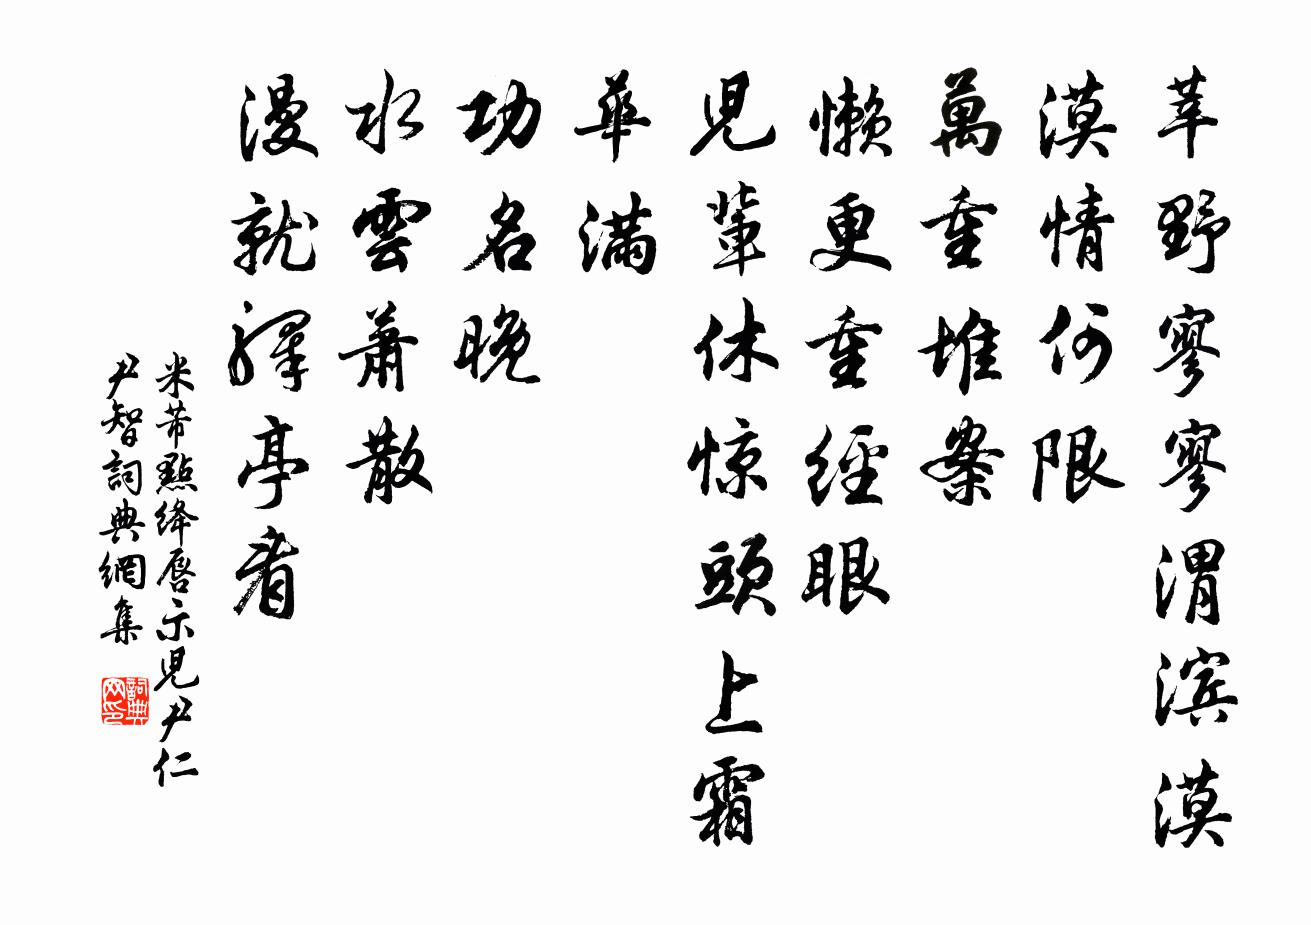 莘野寥寥渭滨漠
漠情何限
萬重堆案
懶更重經眼
兒輩休惊頭上霜
華滿
功名晚
水雲蕭散
漫就驛亭看
米芾點绛唇示兒尹仁
尹智詞典網集
詞典网印